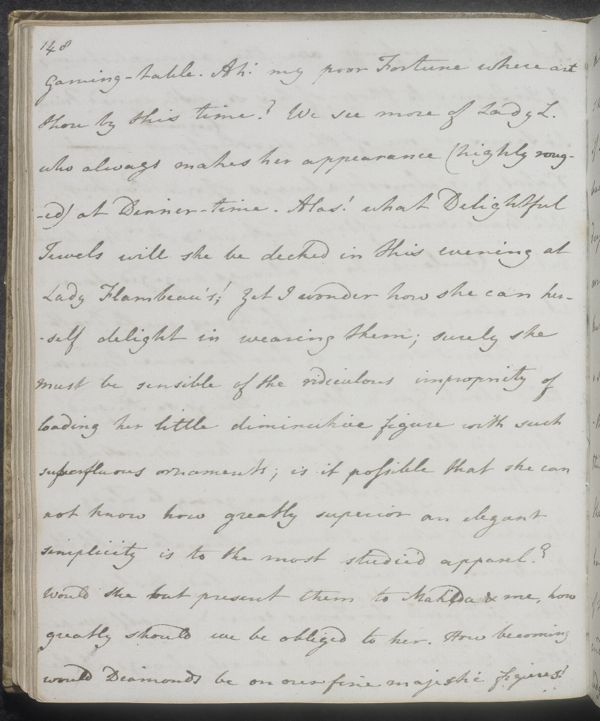 148
Gaming-table. Ah! my poor Fortune where art
thou by this time? We see more of Lady L.
who always makes her appearance (highly roug-
-ed) at Dinner-time. Alas! what Delightful
Jewels will she be decked in this evening at
Lady Flambeau's! Yet I wonder how she can her-
-self delight in wearing them; surely she
must be sensible of the ridiculous impropriety of
loading her little diminutive figure with such
superfluous ornaments; is it possible that she can
not know how greatly superior an elegant
simplicity is to the most studied apparel?
Would she but present them to Matilda & me, how
greatly should we be obliged to her. How becoming
would Diamonds be on our fine majestic figures!